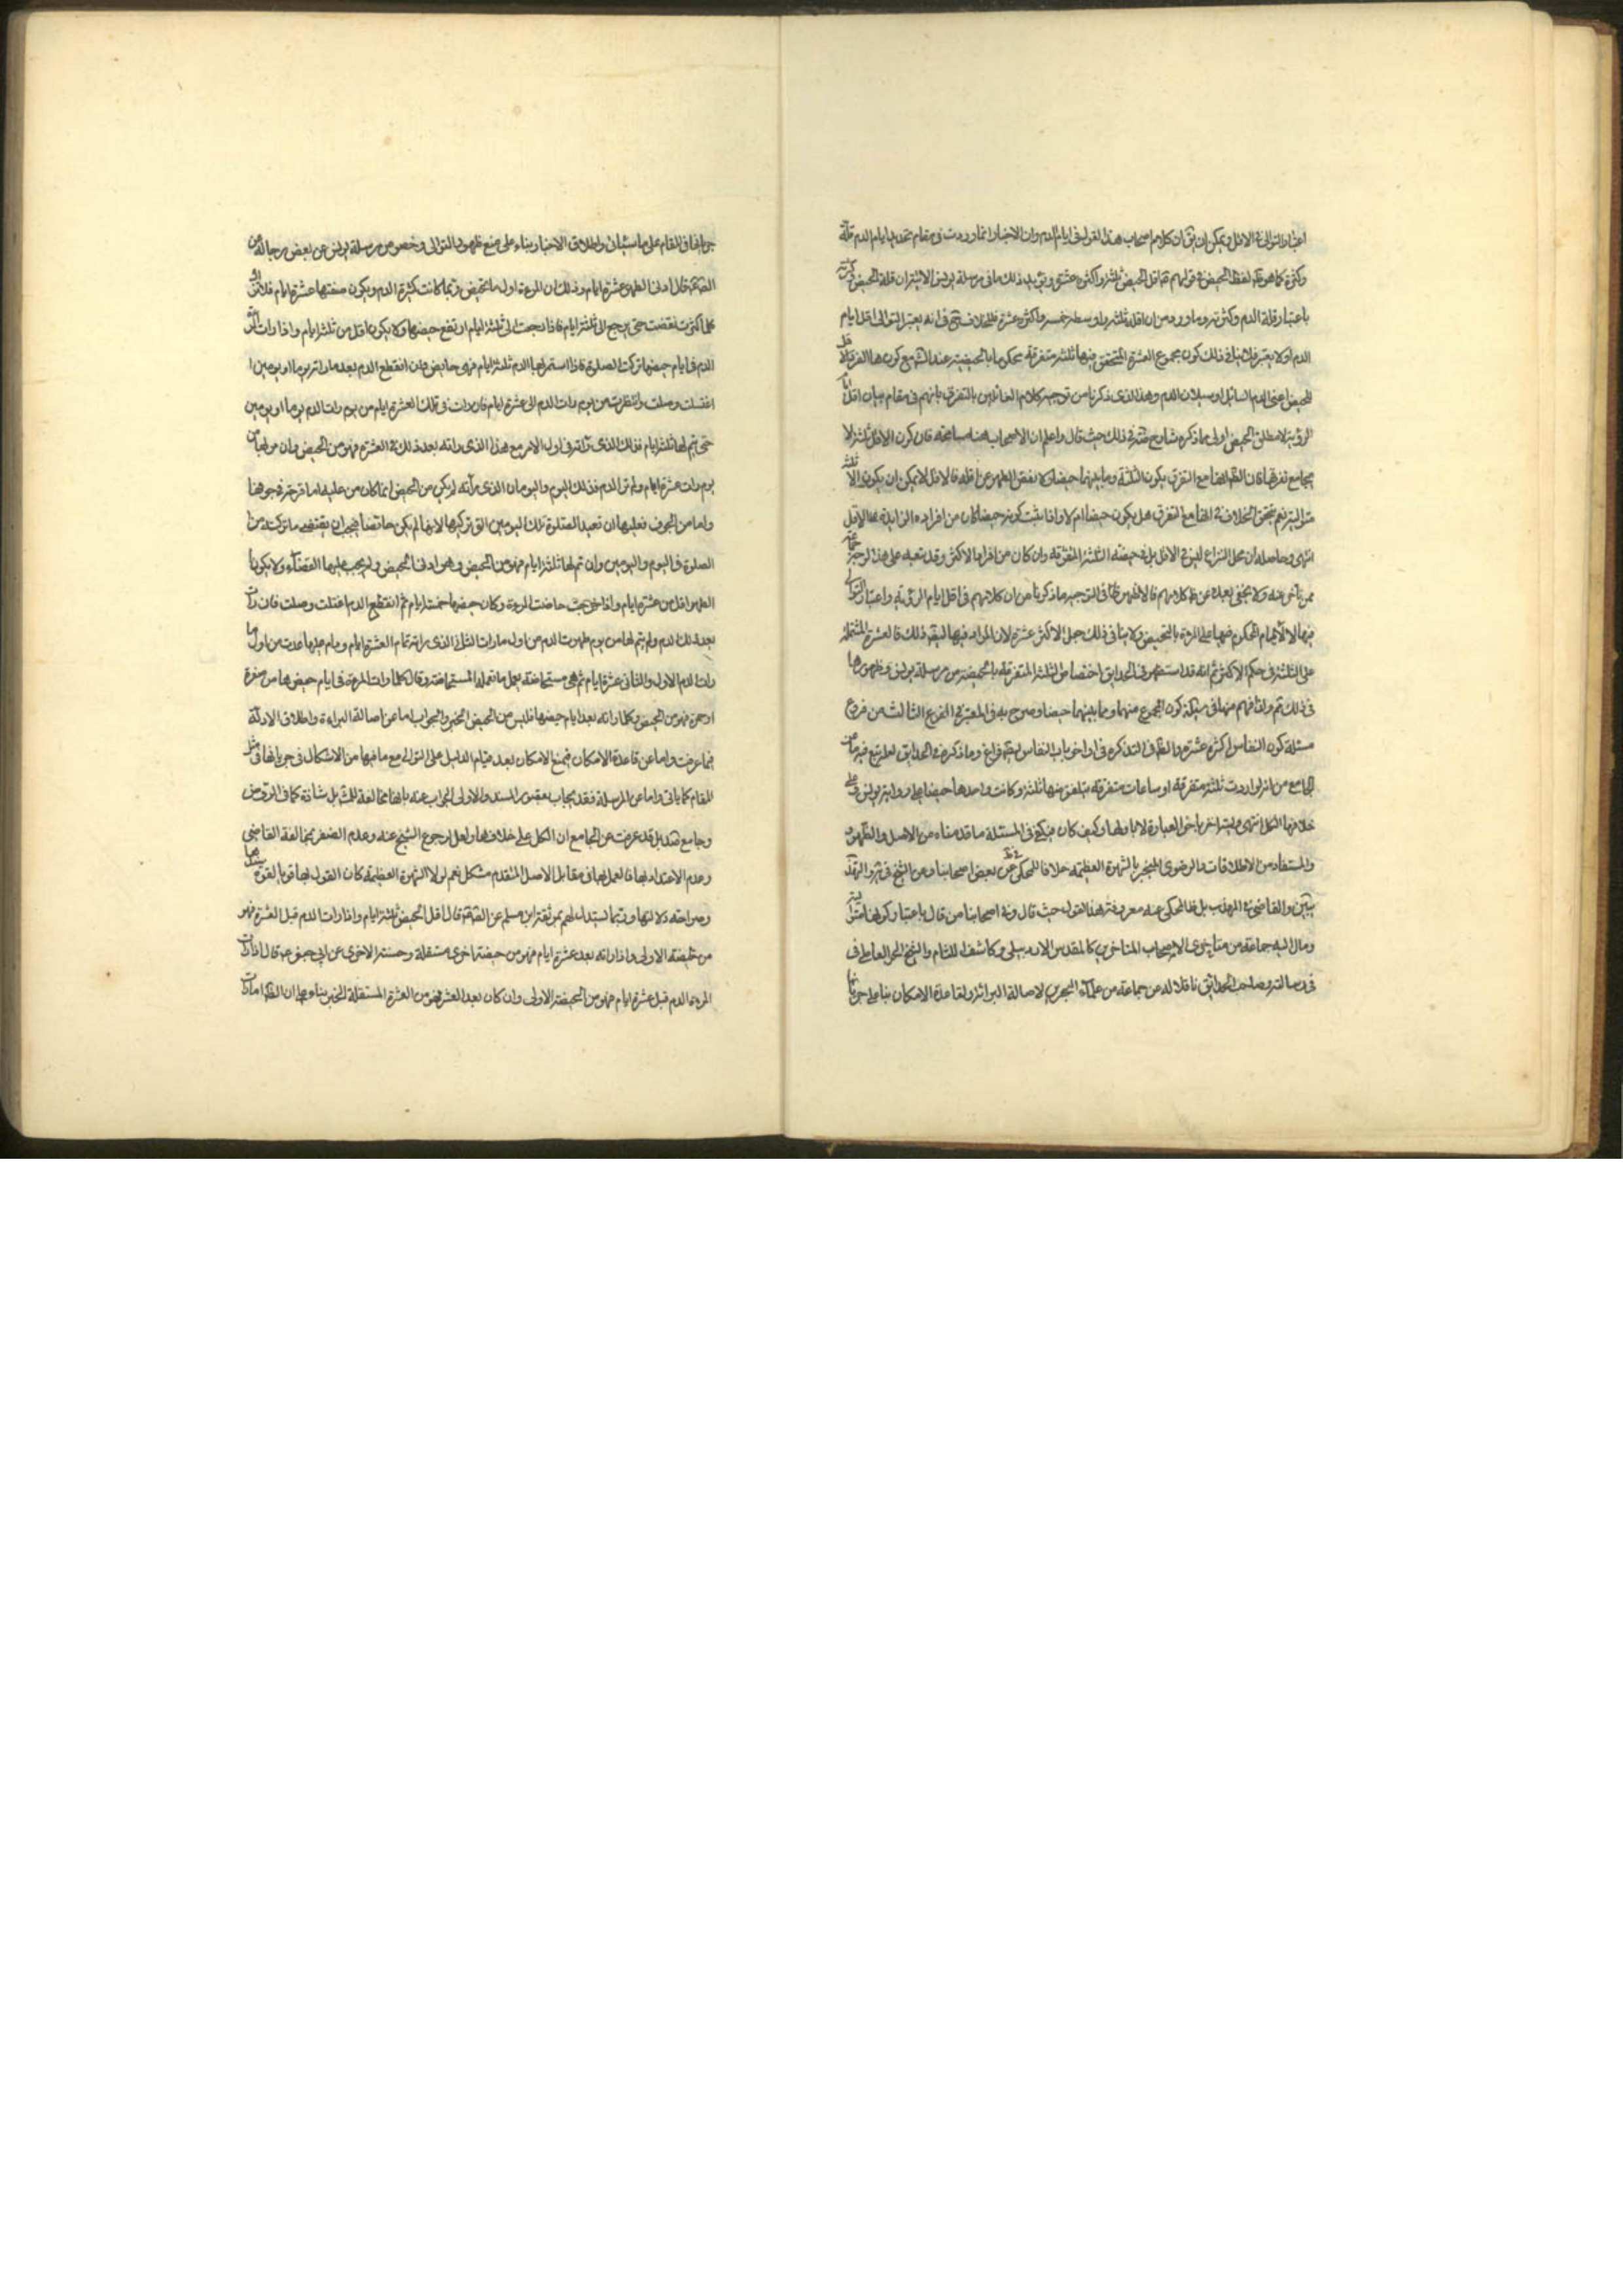 اعتبار التوالی فی الاقل ویمکن ان یق ان کلام اصحاب هذا القول فی ایام الدم وان الاخبار انما وردت فی مقام تحدید ایام الدم قلة
وکثرة کما هو ظ لفظ الحیض فی قولهم اقل الحیض ثلثة واکثره عشرة ویؤید ذلک ما فی مرسلة یونس الاتیة ان قلة الحیض وکثرته
باعتبار قلة الدم وکثرته وما ورد من ان اقله ثلثة واوسطه خمسة واکثره عشرة فی انه یعتبر التوالی اقل ایام
الدم اولا یعتبر ذلک کون مجموع العشرة المتحقق فیها ثلثة متفرقة محکوما بالحیضیة عند مع کون
للحیض اعنی الدم السائل او سیلان الدم وهذا الذی ذکرنا من توجیه کلام القائلین بالتفرق بانهم فی مقام بیان اقل ایام
الرؤیة لا مطلق الحیض اولی مما ذکره شارح فی ذلک حیث قال واعلم ان الاصحاب هنا مسامحة فان کون الاقل ثلثة لا
یجامع تفرقها فان الظ انها مع التفرق یکون الثلثة وما بینهما حیضا لا نقص الطهر عن اقله فالاقل لا یمکن ان یکون الا ثلثة
متوالیة نعم یتحقق الخلاف فی انها مع التفرق هل یکون حیضا ام لا واذا ثبت کونه حیضا کان من افراده الزایدة عما الاقل
انتهی وحاصله ان محل النزاع لیس فی الاقل بل فی حیضیة الثلثة المتفرقة وان کان من افراد الاکثر وقد تبعه علی هذا التوجیه جماعة
ممن تاخر عنه ولا یخفی بعده عن ظ کلامهم فالاظهر فی التوجیه ما ذکرنا من ان کلامهم فی اقل ایام الرؤیة واعتبار التوالی
فیها لا الایام المحکوم فیها علی المرءة بالتحیض ولا ینافی ذلک جعل الاکثر عشرة لان المراد فیها ذلک فالعشرة المشتملة
علی الثلثة فی حکم الاکثر ثم انه قد استظهر فی الحدایق اختصاص الثلثة المتفرقة بالحیضیة من مرسلة یونس وظهورها
فی ذلک ثم کون المجموع منهما وما بینهما حیضا وصرح به فی المعتبر فی الفرع الثالث من فروع
مسئلة کون النفاس اکثره عشرة والعلامة فی التذکرة فی اواخر باب النفاس وما ذکره فی الحدایق لعله تبع فیه ما عن
الجامع من انه لو ارادت ثلثة متفرقة او ساعات متفرقة یتلفق منها ثلثة وکانت واحدها حیضا علی روایة یونس وعلی
خلافها الکل انتهی العبارة وکیف کان فیکفی فی المسئلة ما قدمناه من الاصل والظهور
والمستفاد من الاطلاقات والرضوی المنجبر بالشهرة العظیمة خلافا للمحکی عن بعض اصحابنا وعن الشیخ فی
والقاضی فی المهذب بل ظ المحکی عنه معروفیة هذا القول حیث قال وفی اصحابنا من قال باعتبار کونها متوالیة
ومال الیه جماعة من متاخری الاصحاب المتاخرین کالمقدس الاردبیلی وکاشف اللثام والشیخ الحر العاملی فی
فی رسالته وصاحب الحدایق ناقلا له عن جماعة من علماء البحرین لاصالة البرائة ولقاعدة الامکان بناء علی جریانها
جریانها فی المقام علی ما سیاتی واطلاق الاخبار بناء علی منع ظهورها فی التوالی وخصوص مرسلة یونس عن بعض رجاله عن
الصادق ع قال ادنی الطهر عشرة ایام وذلک ان المرءة اول ما تحیض ربما کانت کثیرة الدم ویکون حیضها عشرة ایام فلا تزال
کلما کبرت نقصت حتی یرجع الی ثلثة ایام فاذا رجعت الی ثلثة ایام ارتفع حیضها ولا یکون اقل من ثلثة ایام واذا رات المرءة
الدم فی ایام حیضها ترکت الصلوة فاذا استمر بها الدم ثلثة ایام فهی حایض وان انقطع الدم بعد ما راته یوما او یومین
اغتسلت وصلت وانتظرت من یوم رات الدم الی عشرة ایام فان رات فی تلک العشرة ایام من یوم رات الدم یوما او یومین
حتی یتم لها ثلثة ایام فذلک الذی راته فی اول الامر مع هذا الذی راته بعد ذلک فی العشرة فهو من الحیض وان مر بها من
یوم رات عشرة ایام ولم تر الدم فذلک الیوم والیومان الذی راته لم یکن من الحیض انما کان من علة اما قرحة فی جوفها
واما من الجوف فعلیها ان تعید الصلوة تلک الیومین التی ترکتها لانها لم یکن حائضا فیجب ان یقتضی ما ترکت من
الصلوة فی الیوم والیومین وان تم لها ثلثة ایام فهو من الحیض وهو ادنی الحیض ولم یجب علیها القضاء ولا یکون
الطهر اقل من عشرة ایام واذا حاضت المرءة وکان حیضها خمسة ایام ثم انقطع الدم اغتسلت وصلت فان رات
بعد ذلک الدم ولم یتم لها من یوم طهرت الدم من اول ما رات الثانی الذی راته تمام العشرة ایام ودام علیها عدت من اول ما
رات الدم الاول والثانی عشرة ایام ثم هی مستحاضة تعمل ما تعمله المستحاضة وقال کلما رات المرءة فی ایام حیضها من صفرة
او حمرة فهو من الحیض وکلما راته بعد ایام حیضها فلیس من الحیض الخبر والجواب اما عن اصالة البراءة واطلاق الادلة
فبما عرفت واما عن قاعدة الامکان فبمنع الامکان بعد قیام الدلیل علی التوالی مع ما فیها من الاشکال فی جریانها فی مثل
المقام کما یاتی واما عن المرسلة فقد یجاب بقصور السند والاولی الجواب عنه بانها مخالفة للمش بل شاذة کما فی الروض
وجامع صد بل قد عرفت عن الجامع ان الکل علی خلافها ولعل لرجوع الشیخ عنه وعدم الضفر بمخالفة القاضی
وعدم الاعتداد بها فالعمل بها فی مقابل الاصل المتقدم مشکل نعم لولا الشهرة العظیمة کان القول بها قویا لقوة سندها
وصراحة دلالتها وربما یستدل لهم بموثقة ابن مسلم عن الصادق ع قال اقل الحیض ثلثة ایام واذا رات الدم قبل العشرة فهو
من الحیضة الاولی واذا راته بعد عشرة ایام فهو من حیضة اخری مستقلة وحسنته الاخری عن ابی جعفر ع قال اذا رات
المرءة الدم قبل عشرة ایام فهو من الحیضة الاولی وان کان بعد العشرة فهو من العشرة المستقلة الخبر بناء علی ان الظ